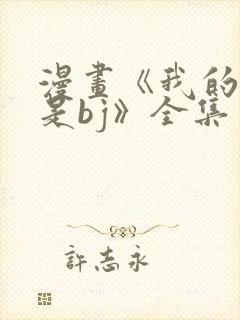 漫畫《我的
是bj》全集
許志永